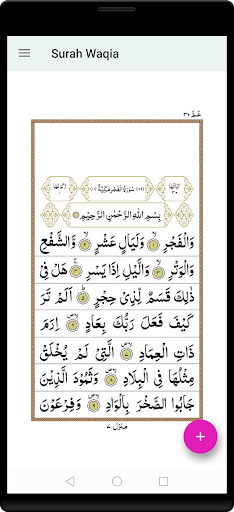 Surah Waqia
عَمّ ٣٠
اٰيَاتُهَا ٣٠
(٨٩) سُوْرَةُ الْفَجْرِ مَكِّيَّةٌ (١٠)
رُكُوْعُهَا ١
بِسْمِ اللّٰهِ الرَّحْمٰنِ الرَّحِيْمِ
وَالْفَجْرِ ۝١ وَلَيَالٍ عَشْرٍ ۝٢ وَّالشَّفْعِ
وَالْوَتْرِ ۝٣ وَالَّيْلِ اِذَا يَسْرِ ۝٤ هَلْ فِيْ
ذٰلِكَ قَسَمٌ لِّذِيْ حِجْرٍ ۝٥ اَلَمْ تَرَ
كَيْفَ فَعَلَ رَبُّكَ بِعَادٍ ۝٦ اِرَمَ
ذَاتِ الْعِمَادِ ۝٧ الَّتِيْ لَمْ يُخْلَقْ
مِثْلُهَا فِي الْبِلَادِ ۝٨ وَثَمُوْدَ الَّذِيْنَ
جَابُوا الصَّخْرَ بِالْوَادِ ۝٩ وَفِرْعَوْنَ
منزل ٧